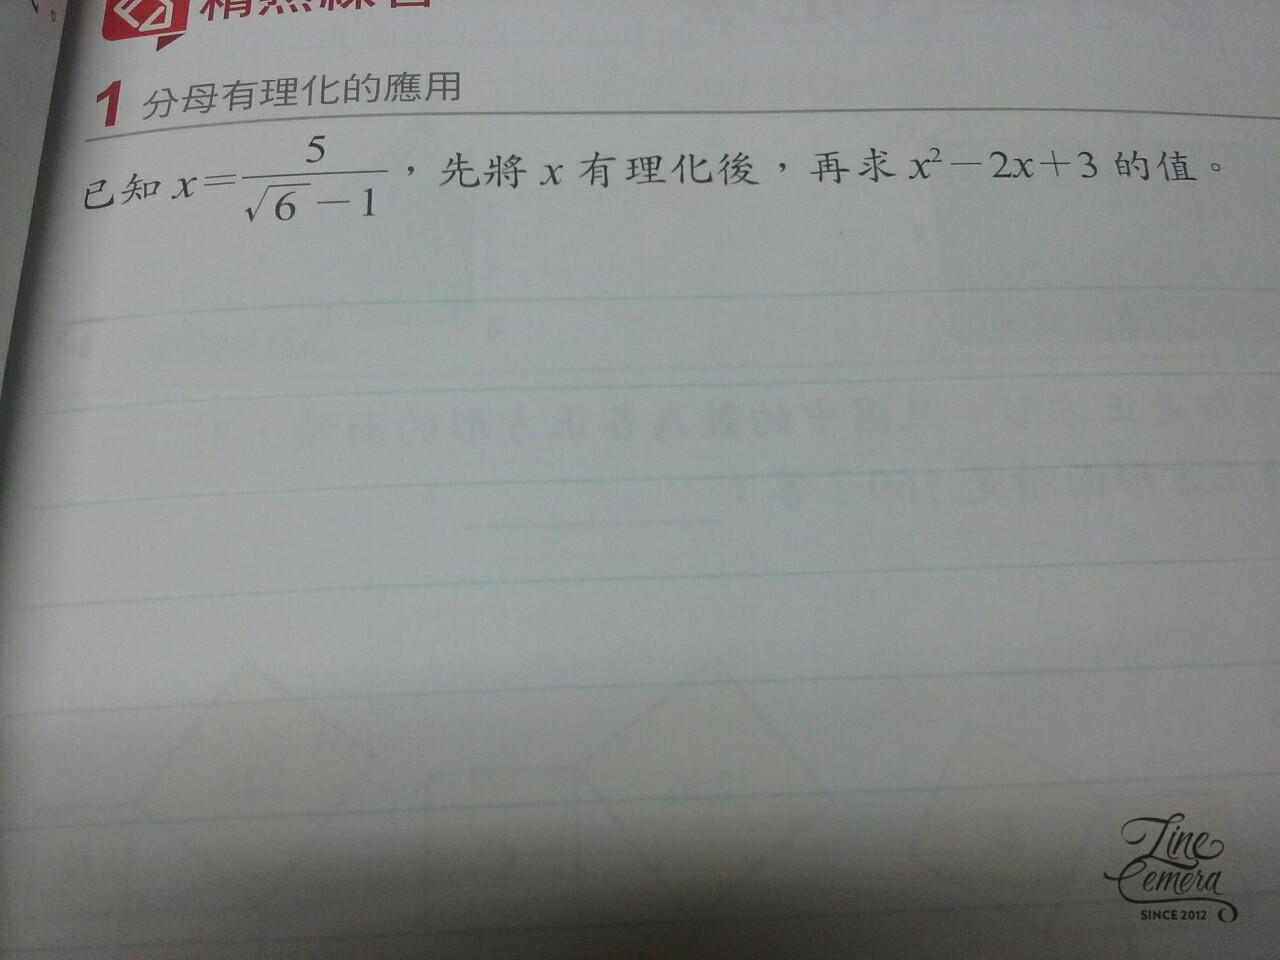 精熟練習
1 分母有理化的應用
已知 x=5/(√6-1),先將 x 有理化後,再求 x²-2x+3 的值。
Line
Camera
SINCE 2012